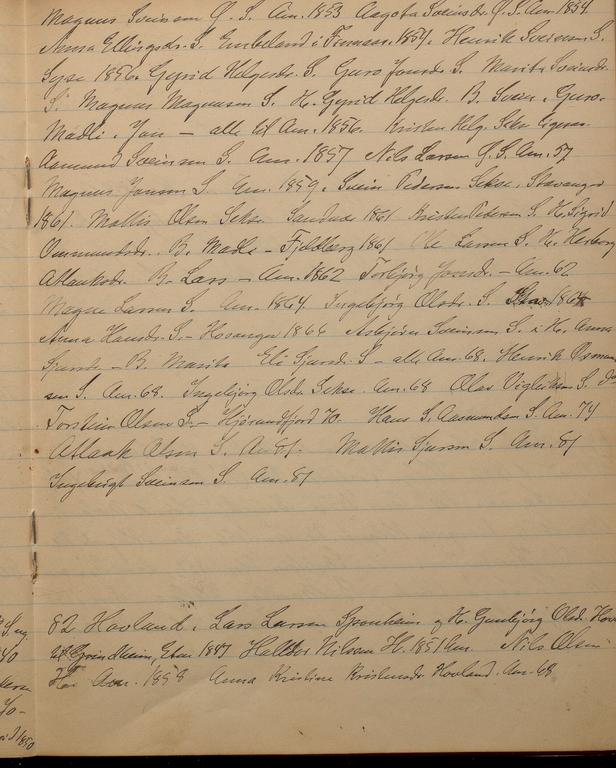 Magnus Sveinsen Q. S. Am. 1853 Aagota Sveinsdr. Q. S. Am. 1854.
Anna Ellingsdr. S. Embeland i Finnaas. 1854. Henrik Sveinsen S.
Syse 1856. Gyrid Helgesdr. S. Guro Jonsdr. S. Marita Sveinsdr.
S. Magnus Magnussen S. H. Gyrid Helgesdr. B. Svein, Guro.
Madli. Jon — alle til Am. 1856. Kristen Helg. Sekse
Aamund Sveinsen S. Am. 1857 Nils Larsen Q. S. Am. 57
Magnus Jonsen S. Am. 1859. Svein Pedersen Sekse. Stavanger
1861. Mattis Olsen Sekse. Sandnæs 1861 Kristen Pedersen S. H. Sigrid
Ommundsdr. B. Madle — Fjeldberg 1861 Ole Larsen S. H. Herborg
Atlaksdr. B. Lars — Am. 1862 Torbjørg Jonsdr. — Am. 62
Magne Larsen S. Am. 1864. Ingebjørg Olsdr. S. 1864
Anna Hansdr. S. — Hosanger 1866 Asbjørn Sveinsen S. i H. Anna
Sjursdr. — B. Marita Eli Sjursdr. S — alle Am. 68. Henrik
sen S. Am. 68. Ingebjørg Olsdr. Sekse Am. 68 Olav Vigleiksen S.
Torstein Olsen S. — Hjørundfjord 70. Hans S. Aasmundsen S. Am. 74
Atlaak Olsen S. Am 81. Mattis Sjursen S. Am. 81
Ingebrigt Sveinsen S. Am. 81
82 Hovland. Lars Larsen Sponheim og H. Gunbjørg Olsdr. Hov.
til Grindheim, Etne 1847 Halldor Nilsen H. 1851 Am. Nils Olsen
Hov. Am. 1858 Anna Kristine Kristensdr. Hovland. Am. 68
S. og
40
40—
1850